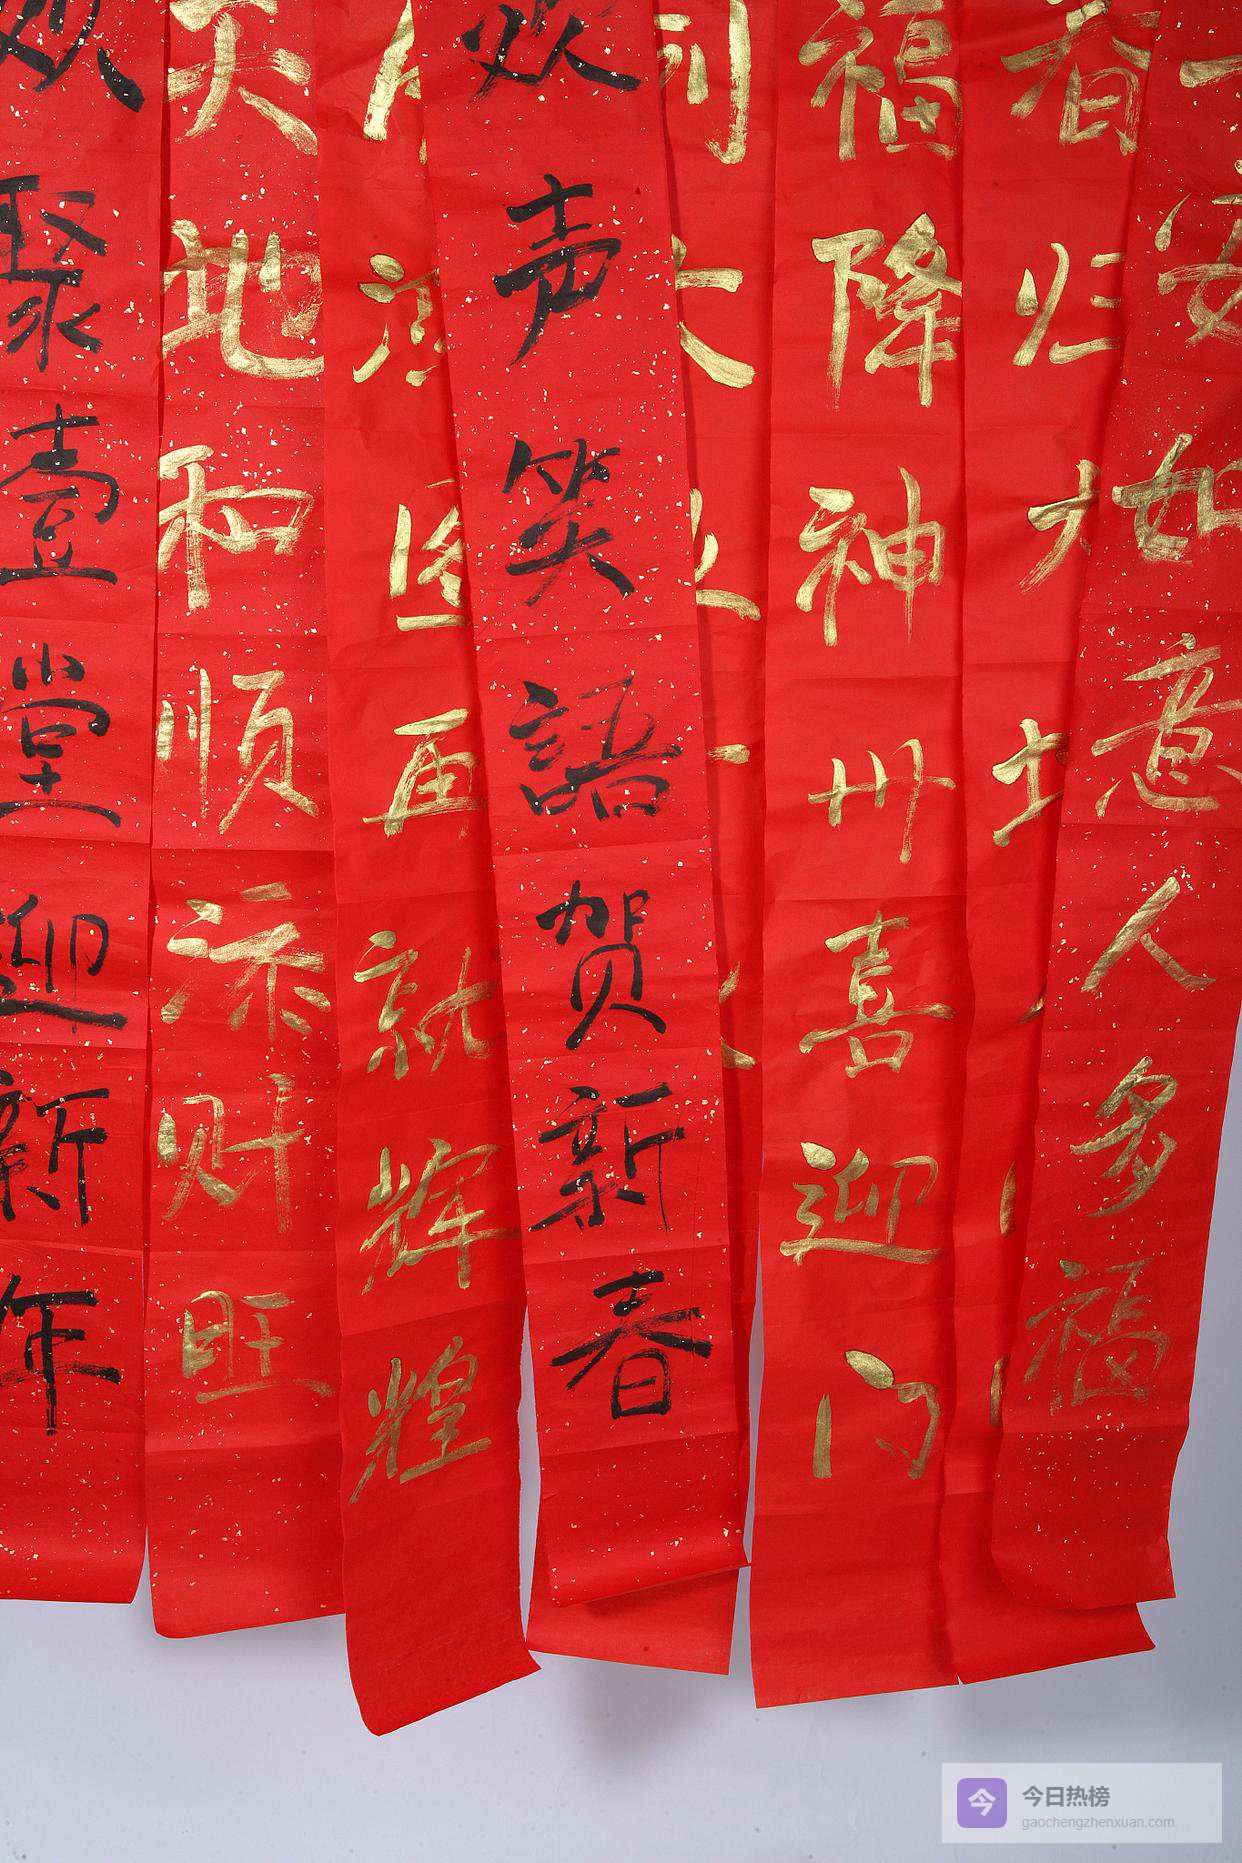 欢聚壹堂迎新年
天地和顺添财旺
图再就辉煌
欢声笑語贺新春
福降神州喜迎门
春归大地
安如意人多福
今 今日热榜
gaochengzhenxuan.com